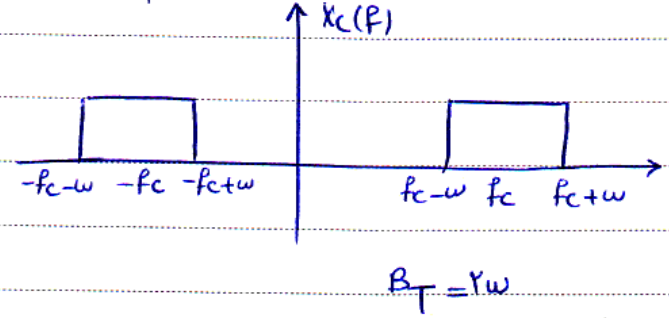 Xc(f)
-fc-w -fc -fc+w fc-w fc fc+w
B_T = ۲w